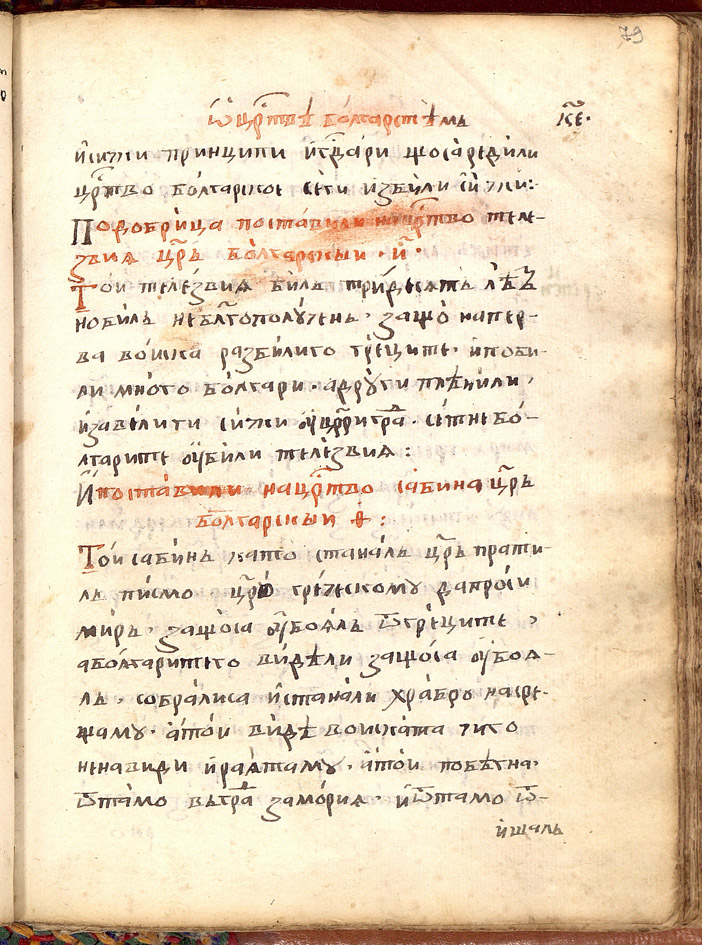 79
ѿ црⷭ҇твѣ болгарстѣмъ к҃е·
и сички принципи и гдⷭ҇ари що са редили
црⷭ҇тво болгарское сети избили сички:
По добрица поставили на црⷭ҇тво теле-
звиа цр҃ь болгарскыи · и҃ ·
Тои телезвиа билъ тридесять лѣтъ
но билъ неблг҃ополученъ · защо на пер-
ва воиска разбилиго греците · и поби-
ли много болгари · а други плѣнили ,
и завелиги сички ѹ цр҃игра · сетне бо-
лгарите ѹбили телезвиа :
И поставили на црⷭ҇тво сабина цр҃ь
болгарскыи ѳ҃ :
Тои сабинъ като станалъ цр҃ь прати-
лъ писмо цр҃ю греческому да проси
миръ · защо са ѹбоялъ ѿ греците ,
а болгарите го видѣли защо са ѹбоя-
лъ · собралиса и станали храбро насре-
щаму · а тои видѣ воиската чи го
ненавиди и ратаму · а тои побѣгна ·
ѿтамо въ гра замориа · и ѿтамо ѿ-
ишалъ